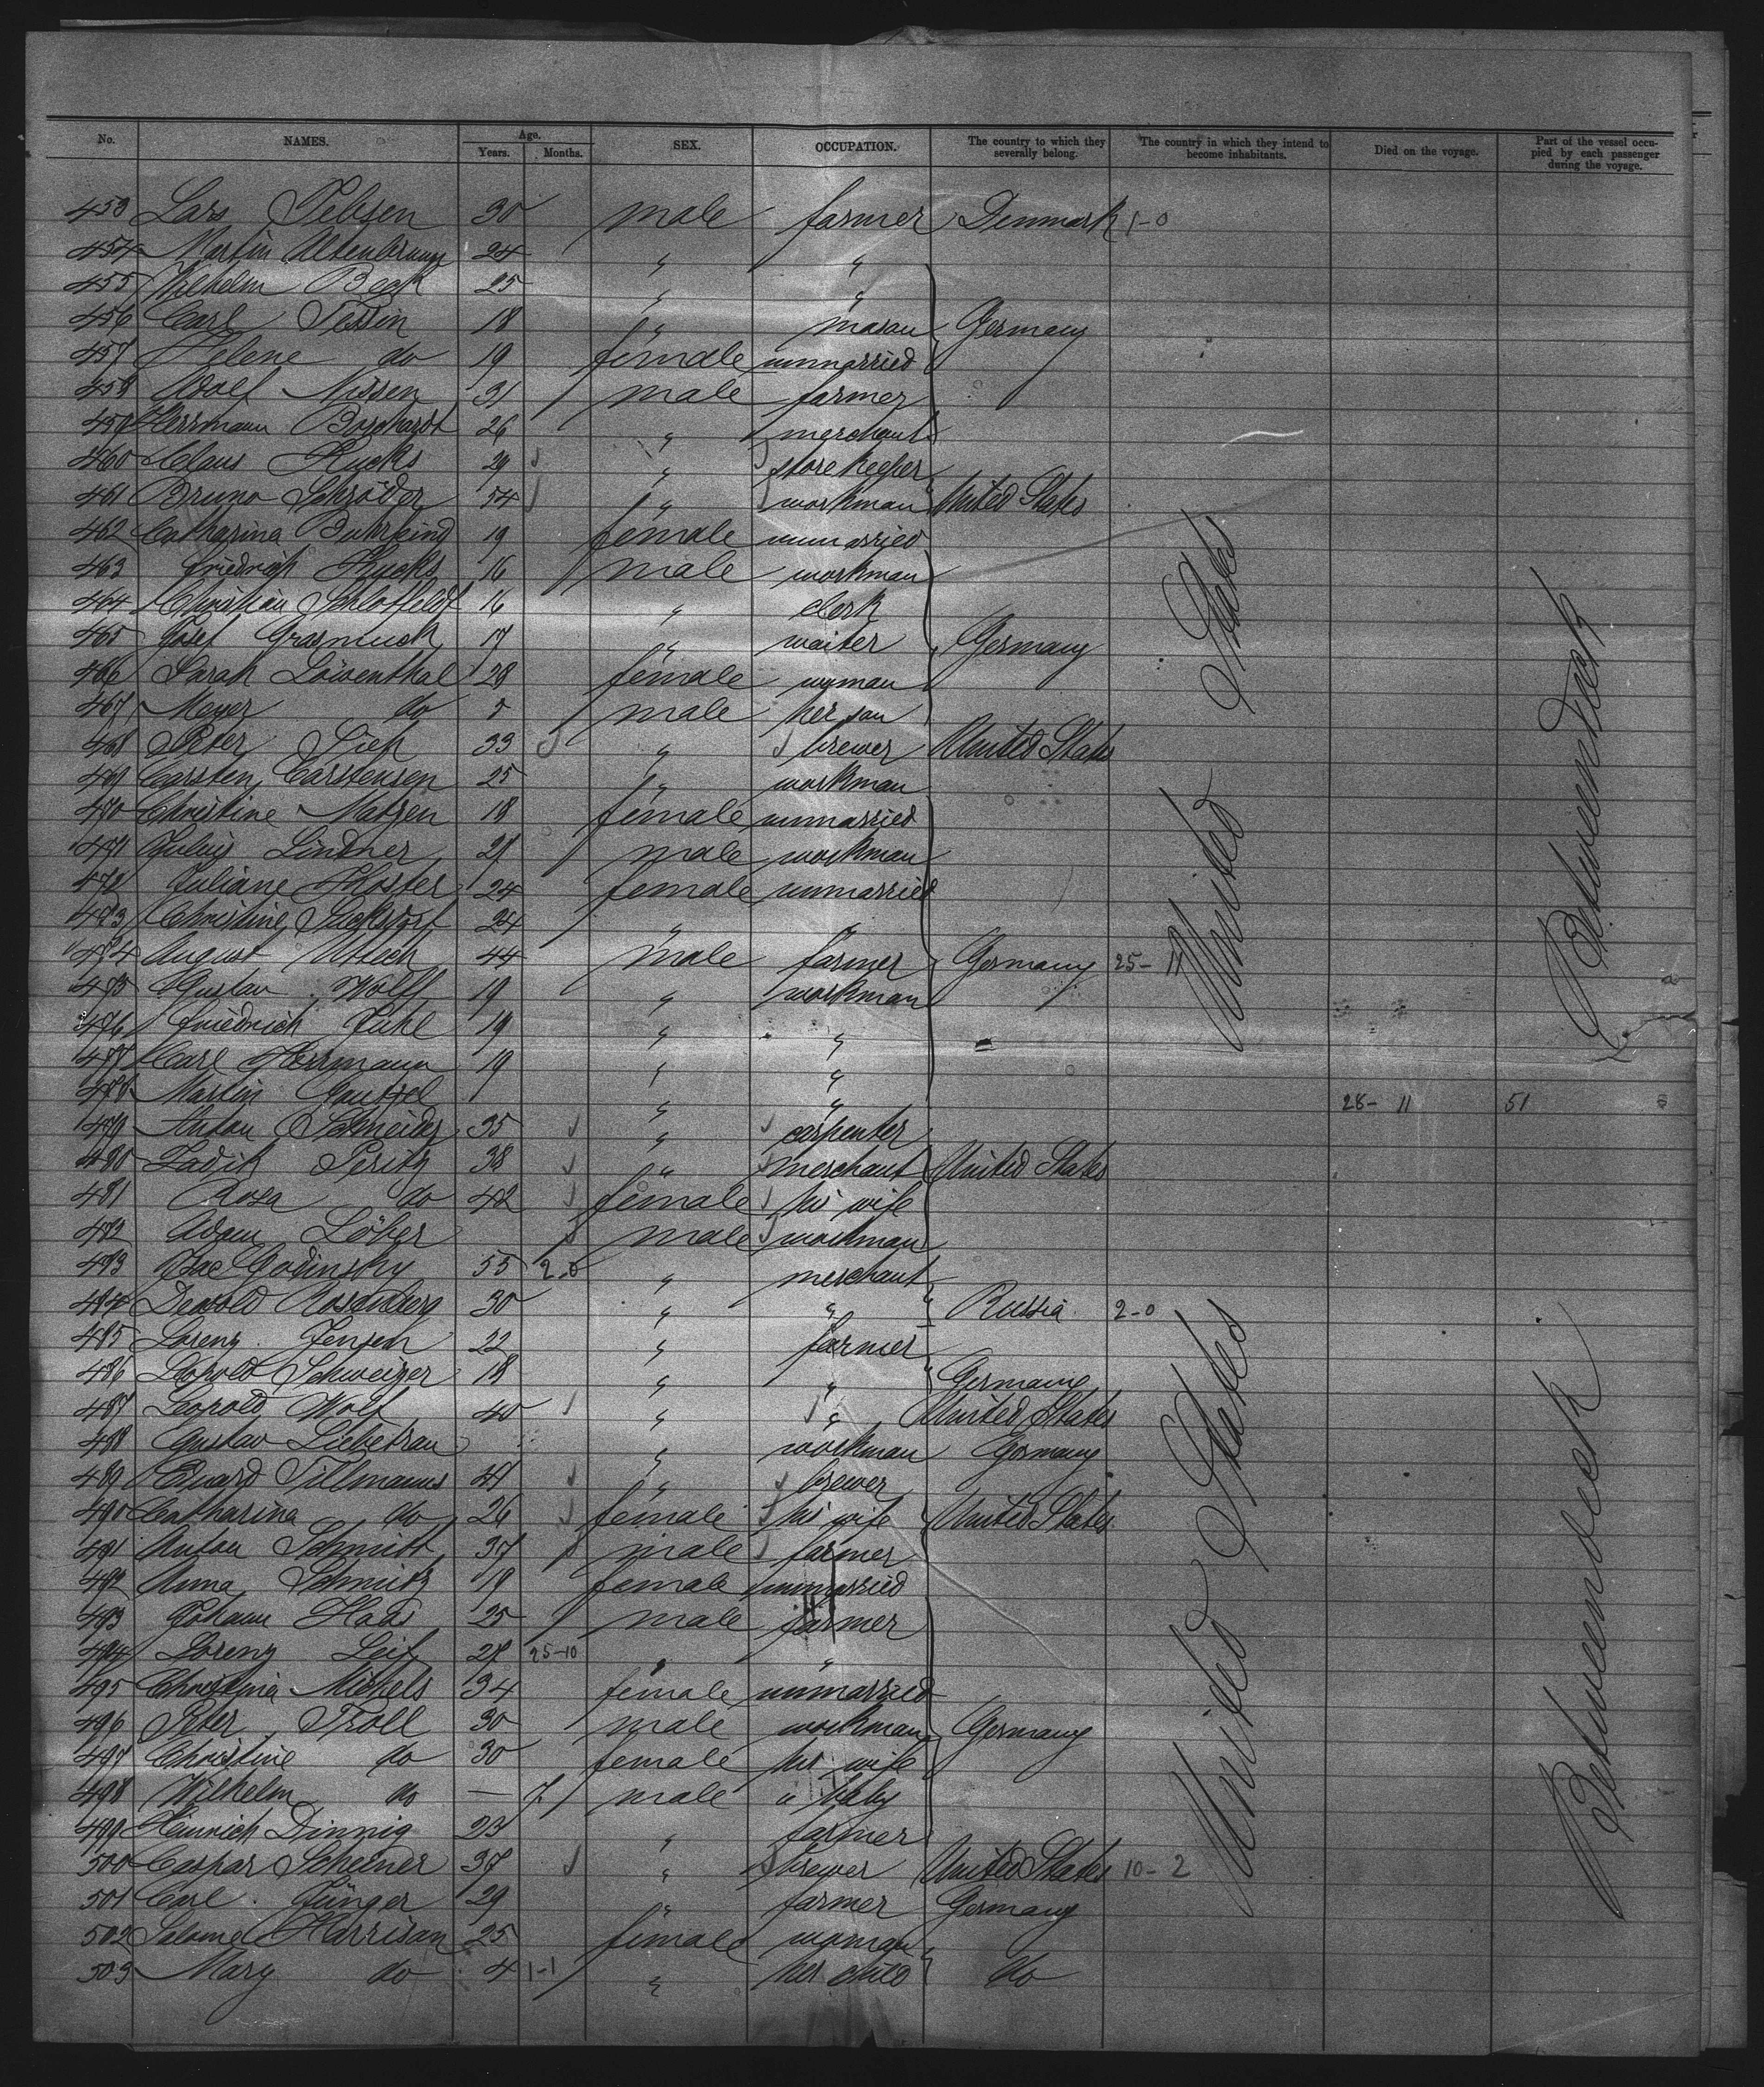 No. NAMES. Age. Years. Months. SEX. OCCUPATION. The country to which they severally belong. The country in which they intend to become inhabitants. Died on the voyage. Part of the vessel occupied by each passenger during the voyage.
453 Lars 30 male farmer Denmark 1-0
454 Martin 24 " "
455 Wilhelm Beck 25 " "
456 Carl Tessin 18 " mason Germany
457 Helene do 19 female unmarried
458 Adolf Nissen 31 male farmer
459 Herrmann Borchardt 26 " merchant
460 Claus Kucks 29 " storekeeper
461 Bruno Schröder 54 " workman United States
462 Catharina 19 female unmarried
463 Friedrich Kucks 16 male workman
464 Christian Schlotfeldt 16 " clerk
465 Josef Grasmuck 17 " waiter Germany
466 Sarah Löwenthal 28 female woman
467 Meyer do male her son
468 Peter Sieh 33 " brewer United States
469 Carsten Carstensen 25 " workman
470 Christine Matzen 18 female unmarried
471 Julius Lindner 21 male workman
472 Juliane Koster 24 female unmarried
473 Christine 24 " "
474 August Utech 44 male farmer Germany 25-11
475 Gustav Wolff 19 " workman
476 Friedrich 19 " "
477 Carl Herrmann 19 " "
478 Martin " " 28-11 51
479 Anton Schneider 35 " carpenter
480 38 " merchant United States
481 Rosa do 42 female his wife
482 Adam Löber male workman
483 55 2-0 " merchant
484 Rosenberg 30 " " Russia 2-0
485 Lorenz Jensen 22 " farmer
486 Leopold Schweizer 18 " " Germany
487 Leopold Wolf 40 " " United States
488 Gustav Liebetrau " workman Germany
489 Eduard Tillmanns 41 " brewer
490 Catharina do 26 female his wife United States
491 Anton Schmitt 37 male farmer
492 Anna Schmitz 19 female unmarried
493 Johann Haas 25 male farmer
494 Lorenz Leif 27 25-10 " "
495 Christina Michels 34 female unmarried
496 Peter Troll 30 male workman Germany
497 Christine do 30 female his wife
498 Wilhelm do — 7 male a baby
499 Heinrich Dinnig 23 " farmer
500 Caspar Scheiner 37 " brewer United States 10-2
501 Carl Jünger 29 " farmer Germany
502 Salome Harrison 25 female woman
503 Mary do 4 1-1 " her child do
United States
United States
Betweendeck
Betweendeck